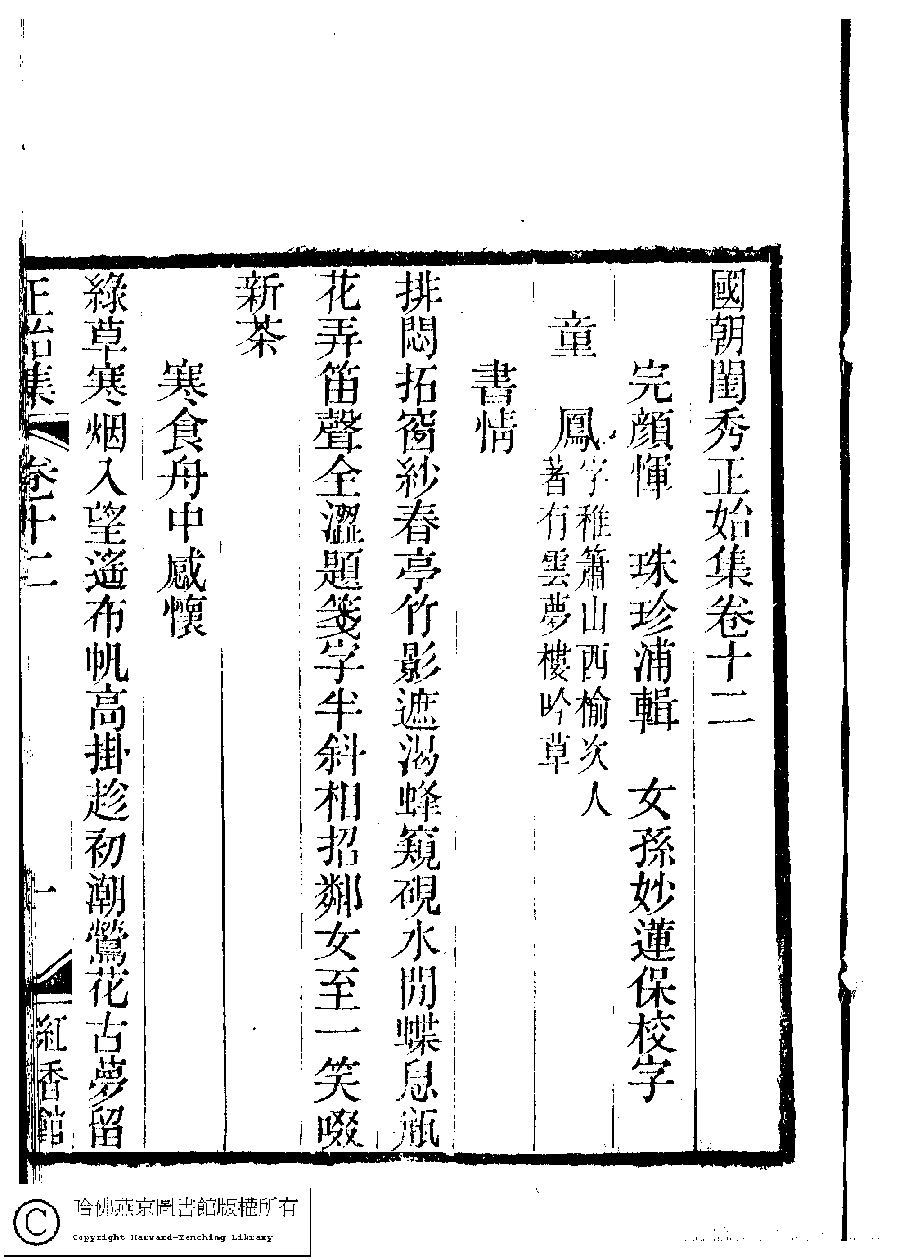 國朝閨秀正始集卷十二
完顔惲 珠珍浦輯 女孫妙蓮保校字
童 鳳字稚簫山西榆次人
著有雲夢樓吟草
書情
排悶拓窗紗春亭竹影遮渴蜂窺硯水閒蝶息瓶
花弄笛聲全澀題箋字半斜相招鄰女至一笑啜
新茶
寒食舟中感懷
綠草寒烟入望遙布帆高掛趁初潮鶯花古夢留
正始集 卷十二 一 紅香館
哈佛燕京圖書館版權所有
Copyright Harvard-Yenching Library